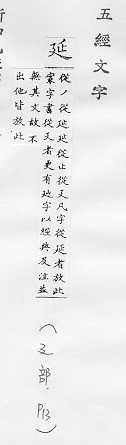 五經文字
延
從丿從㢟㢟從止從廴凡字從延者放此
案字書從廴者更有㢟字以經典及注並
無其文故不
出他皆放此
(廴部, P13)